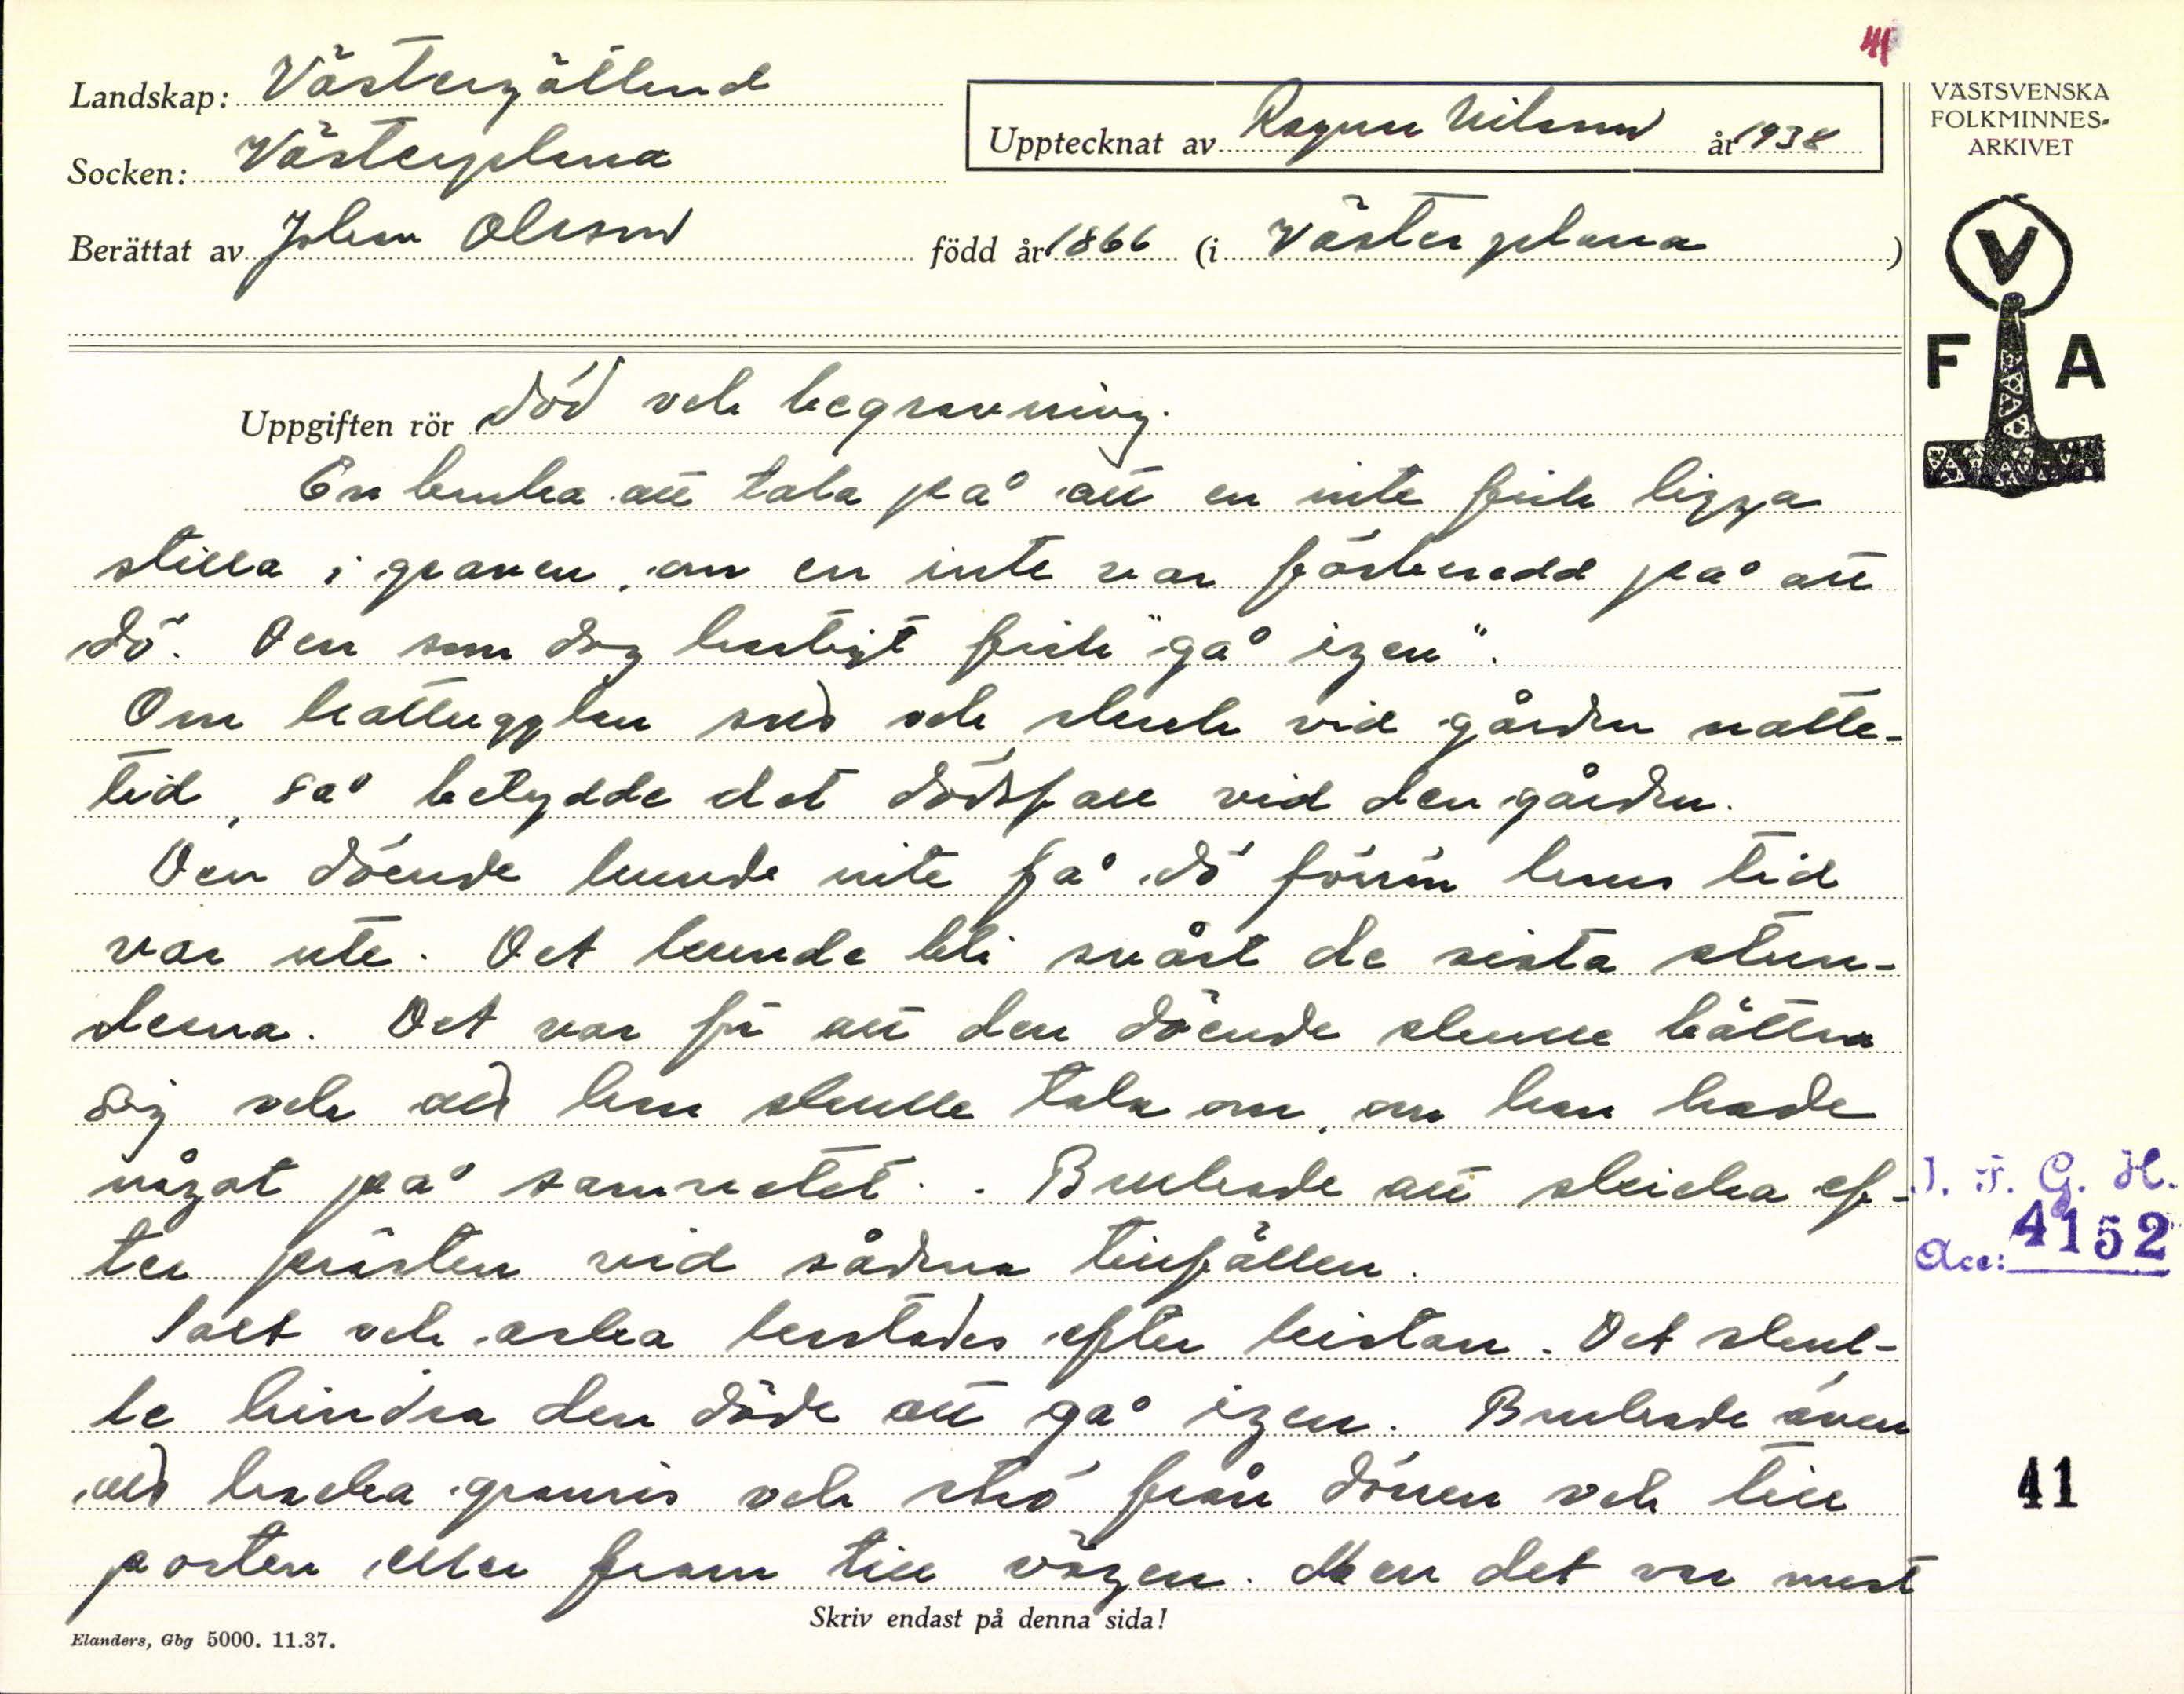 41
Landskap: Västergötland
Socken: Västerplana
Upptecknat av Ragnar Nilsson år 1938
Berättat av Johan Olsson född år 1866 (i Västerplana)
VÄSTSVENSKA
FOLKMINNES-
ARKIVET
V
F A
Uppgiften rör död och begravning.
En bruka att tala på att en inte fick ligga
stilla i graven, om en inte var förberedd på att
dö. Den som dog hastigt fick "gå igen".
Om kattugglan satt och skrek vid gården natte-
tid, så betydde det dödsfall vid den gården.
Den döende kunde inte få dö förrän hans tid
var ute. Det kunde bli svårt de sista stun-
derna. Det var för att den döende skulle bättra
sig och att han skulle tala om, om han hade
något på samvetet. Brukade att skicka ef-
ter prästen vid sådana tillfällen.
Salt och aska kastades efter kistan. Det skul-
le hindra den döde att gå igen. Brukade även
att hacka granris och strö från dörren och till
porten eller fram till vägen. Men det var mest
I. F. G. H.
Acc: 4152
41
Skriv endast på denna sida!
Elanders, Gbg 5000. 11.37.